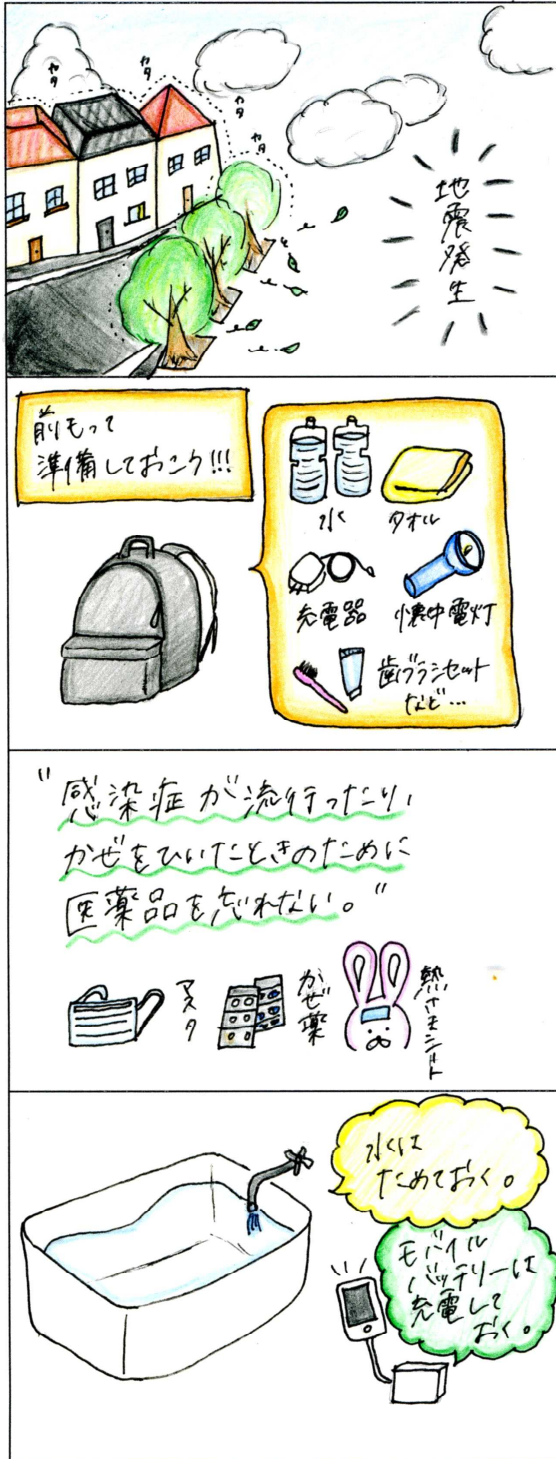 カタ
カタ
カタ
カタ
地震発生
前もって
準備しておこう!!!
水
タオル
充電器
懐中電灯
歯ブラシセット
など…
"感染症が流行ったり、
かぜをひいたときのために
医薬品を忘れない。"
マスク
かぜ薬
熱さまシート
水は
ためておく。
モバイル
バッテリーは
充電して
おく。